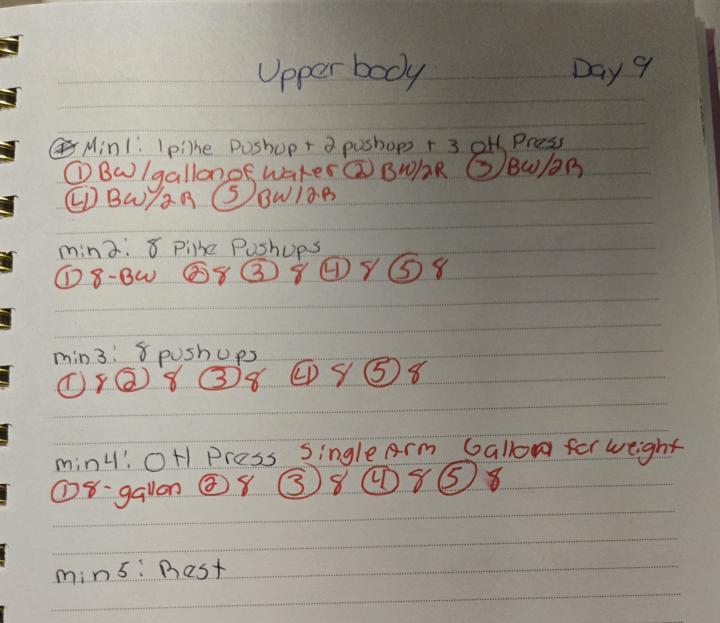 Upper body Day 9
Min1: 1 pike Pushup + 2 pushups + 3 OH Press
① BW/gallon of water ② BW/2R ③ BW/2R
④ BW/2R ⑤ BW/2R
min2: 8 Pike Pushups
① 8-BW ② 8 ③ 8 ④ 8 ⑤ 8
min3: 8 pushups
① 8 ② 8 ③ 8 ④ 8 ⑤ 8
min4: OH Press Single Arm Gallon for weight
① 8-gallon ② 8 ③ 8 ④ 8 ⑤ 8
min5: Rest